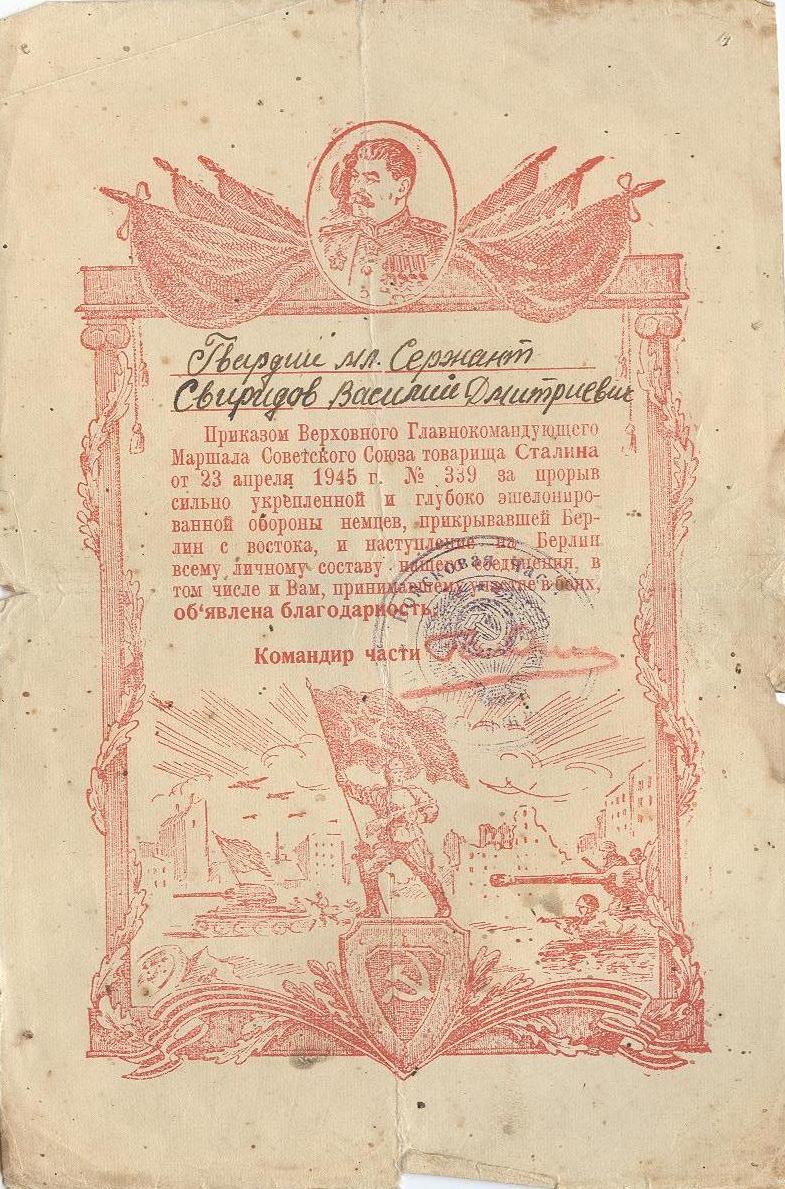 Гвардии мл. Сержант
Свиридов Василий Дмитриевич
Приказом Верховного Главнокомандующего
Маршала Советского Союза товарища Сталина
от 23 апреля 1945 г. № 339 за прорыв
сильно укрепленной и глубоко эшелониро-
ванной обороны немцев, прикрывавшей Бер-
лин с востока, и наступление на Берлин
всему личному составу нашего соединения, в
том числе и Вам, принимавшему участие в боях,
об‘явлена благодарность.
Войсковая часть
Командир части